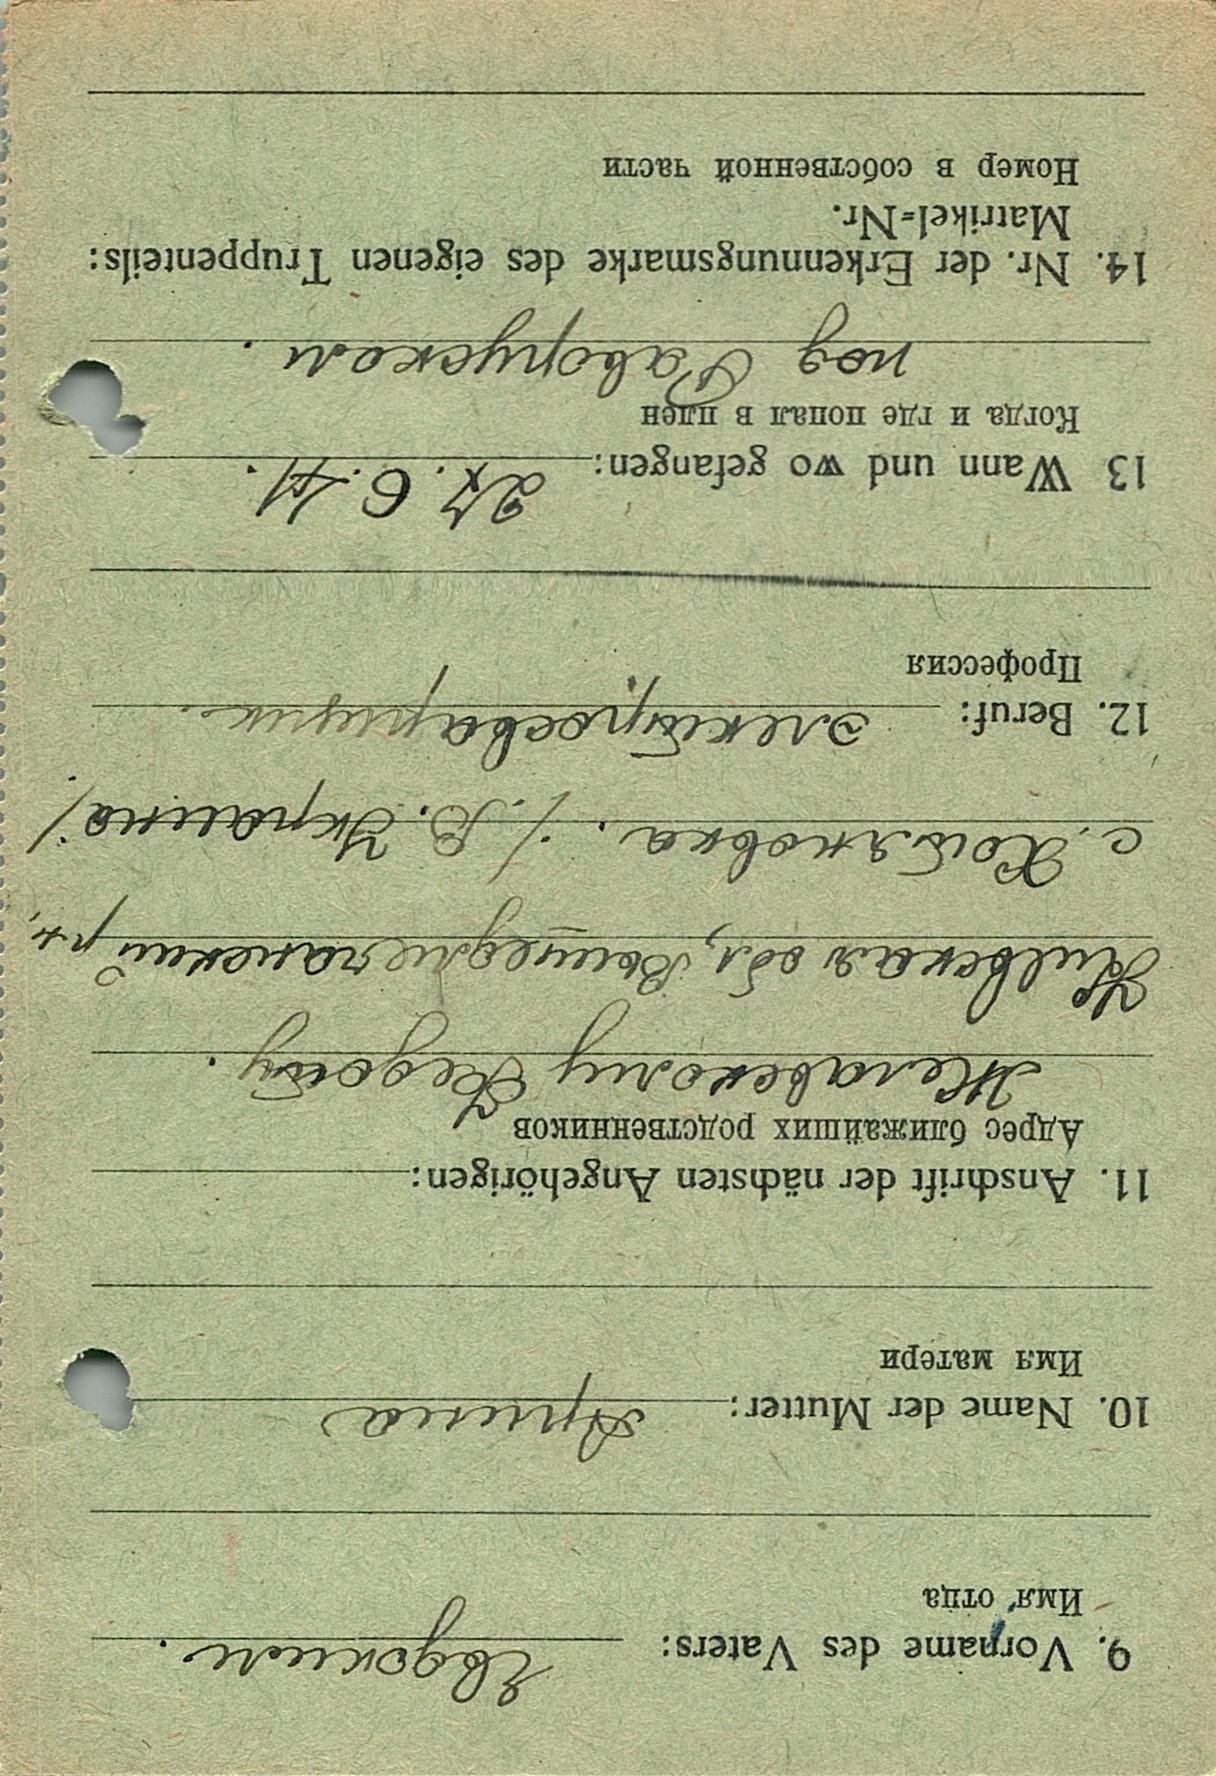 9. Vorname des Vaters: Евдоким.
Имя отца
10. Name der Mutter: Арина
Имя матери
11. Anschrift der nächsten Angehörigen:
Адрес ближайших родственников
Федоту.
Киевская обл, р-н,
с. Хотяновка. (В. Украина).
12. Beruf: электросварщик.
Профессия
13 Wann und wo gefangen: 27. 6. 41.
Когда и где попал в плен
под Раворуском.
14. Nr. der Erkennungsmarke des eigenen Truppenteils:
Matrikel=Nr.
Номер в собственной части